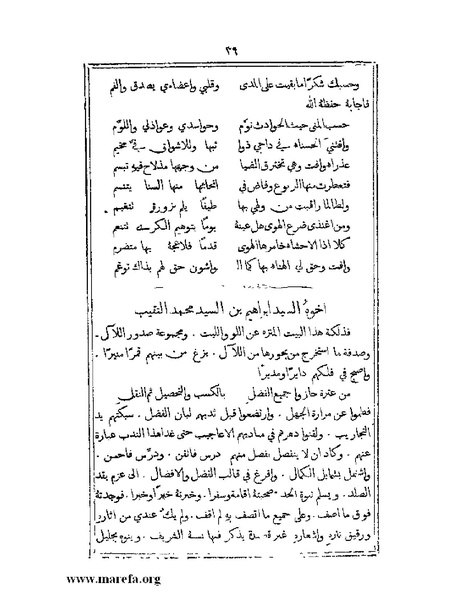 ٣٩
وحسبك شكرًا ما بقيت على المدى وقلبي واعضاءي يصدق والفم
فاجابه حفظه الله
حسب المنى حيث الحوادث نوّم وحواسدي وعواذلي واللوّم
وافتنيَ الحسناء في داجي ذوا ئبها وللاشواق فيَّ مخيم
عذراء وافت وهي تخترق الضيا من وجهها مذ لاح فيهِ تبسم
فتعطرت منها الربوع وفاض في منها السنا
ولطالما راقبت من ولهي بها طيفًا يلم بزورة
ومن اغتذى ضرع الهوى هل عينهُ يومًا بتوهيم الكرى تتنعم
كلا اذا الاحشاء خامرها الهوى قدمًا بها متضرم
وافت وحق لي الهناء بها كما الـ واشون حق لهم بذاك
اخوهُ السيد ابراهيم بن السيد محمد النقيب
فذلكة هذا البيت المنزه عن اللو والليت . ومجموعة صدور اللآل .
وصدفة ما استخرج من بحورها من اللآل . بزغ من بينهم قمرًا منيرًا .
واصبح في فلكهم دايرًا ومديرًا
من عترة حازوا جميع الفضل بالكسب والتحصيل ثم النقل
فطموا عن مرارة الجهل . وارتضعوا قبل ثديهم لبان الفضل . سبكتهم يد
التجاريب . ولقنوا دهرهم في مباديهم الاعاجيب حتى غدا هذا الندب عبارة
عنهم . وكاد ان لا ينفصل بفصل منهم درس فاتقن . ودرّس فاحسن .
واشتمل بشمايل الكمال . وافرغ في قالب الفضل والافضال . الى عزم يقد
الصلد . ويسلم نبوة الحد . صحبتهُ اقامة وسفرا . وخبرتهُ خبرًا وخبرا . فوجدتهُ
فوق ما اصف . وعلى جميع ما اتصف بهِ لم اقف . ولم يك عندي من اثارهِ
ورقيق نثره واشعاره غير يذكر فيها نسبهُ الشريف . وينوه بجليل
www.marefa.org